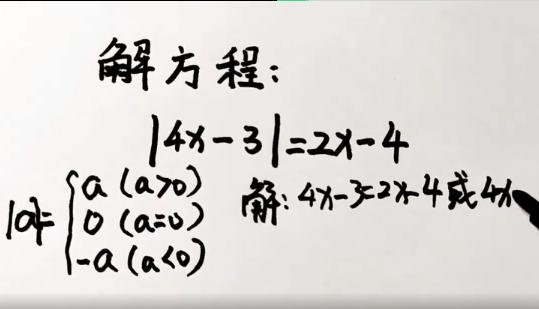 解方程:
|4x-3|=2x-4
|a|= { a (a>0)
0 (a=0)
-a (a<0)
解: 4x-3=2x-4 或 4x